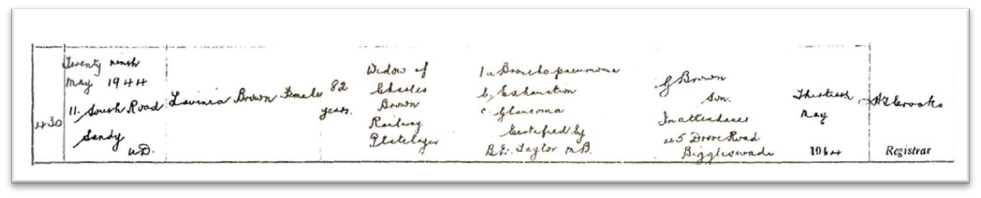 430
Twenty ninth
May 1944
11. South Road
Sandy
U.D.
Lavinia Brown
Female
82
years.
Widow of
Charles
Brown
Railway
Platelayer
1a Bronchopneumonia
b, Exhaustion
c Glaucoma
Certified by
B.E. Taylor M.B.
G Brown
Son.
In attendance
45 Drove Road
Biggleswade
Thirtieth
May
1944
Registrar